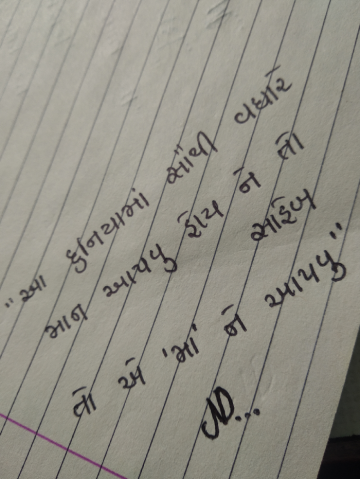 "આ દુનિયામાં સૌથી વધારે
માન આપવુ હોય ને તો
સાહેબ
તો એ 'માં' ને આપવુ"
ND...